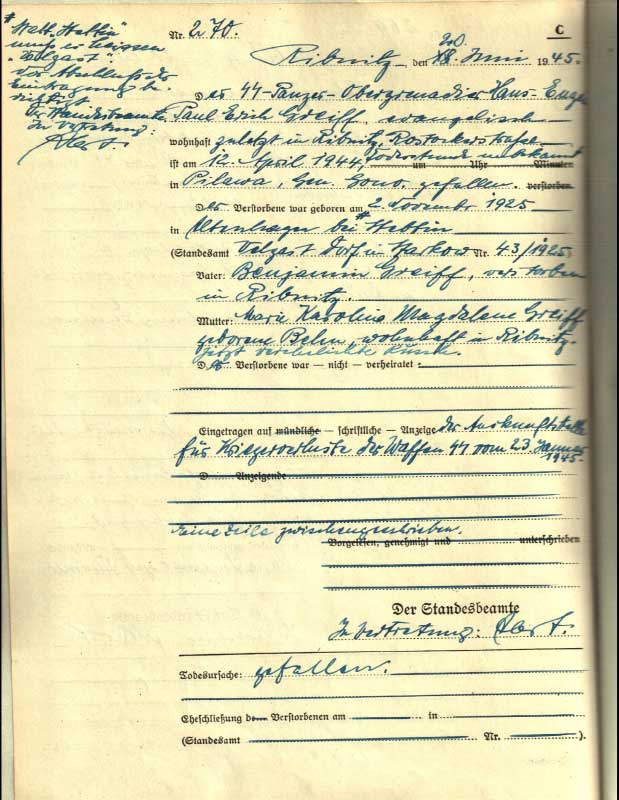 # Statt "Stettin"
muß es heissen
"Velgast".
Der Abschluß der
Eintragung be-
Der Standesbeamte
In Vertretung:
Nr. 270. C
Ribnitz, den 20. Juni 1945.
Der SS-Panzer-Obergrenadier Hans-Eugen
Paul Erich Greiff, evangelisch
wohnhaft zuletzt in Ribnitz, Rostockerstraße
ist am 12. April 1944, Todesstunde unbekannt um Uhr Minuten
in Pilawa, Gen. Gouv. gefallen. verstorben.
Der Verstorbene war geboren am 2. November 1925
in Altenhagen bei # Stettin
(Standesamt Velgast Dorf in Nr. 43/1925)
Vater: Benjamin Greiff, verstorben
in Ribnitz.
Mutter: Marie Karoline Magdalene Greiff
geborene Behn, wohnhaft in Ribnitz.
jetzt verehelichte
Der Verstorbene war — nicht — verheiratet:
Eingetragen auf mündliche — schriftliche — Anzeige der Auskunftstelle
für Kriegerverluste der Waffen SS vom 23. Januar
1945.
D Anzeigende
Eine Zeile zwischengeschrieben.
Vorgelesen, genehmigt und unterschrieben
Der Standesbeamte
In Vertretung:
Todesursache: gefallen.
Eheschließung de Verstorbenen am in
(Standesamt Nr. ).